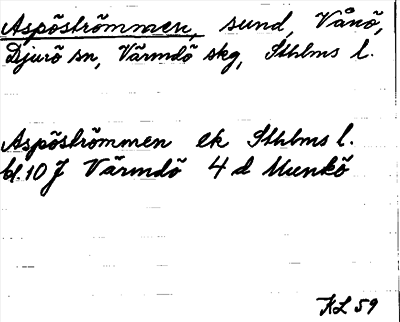 Aspöströmmen, sund, Vånö,
Djurö sn, Värmdö skg, Sthlms l.
Aspöströmmen ek Sthlms l.
bl. 10 J Värmdö 4 d Munkö
KL 59